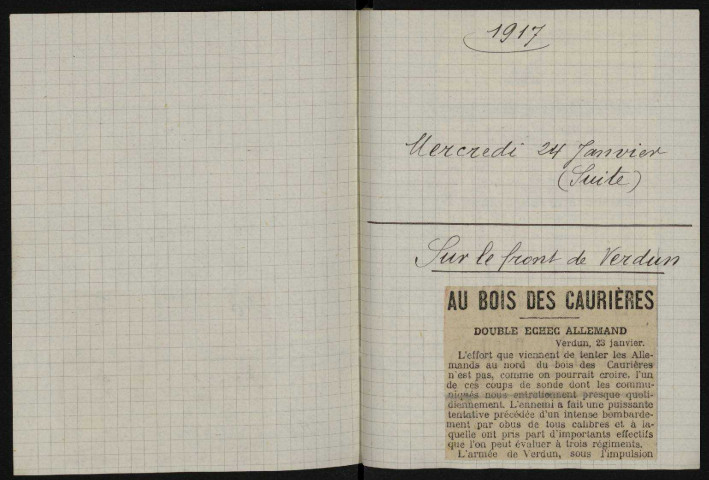 1917
Mercredi 24 Janvier
(Suite)
Sur le front de Verdun
AU BOIS DES CAURIÈRES
DOUBLE ECHEC ALLEMAND
Verdun, 23 janvier.
L'effort que viennent de tenter les Alle-
mands au nord du bois des Caurières
n'est pas, comme on pourrait croire, l'un
de ces coups de sonde dont les commu-
niqués nous entretiennent presque quoti-
diennement. L'ennemi a fait une puissante
tentative précédée d'un intense bombarde-
ment par obus de tous calibres et à la-
quelle ont pris part d'importants effectifs
que l'on peut évaluer à trois régiments.
L'armée de Verdun, sous l'impulsion